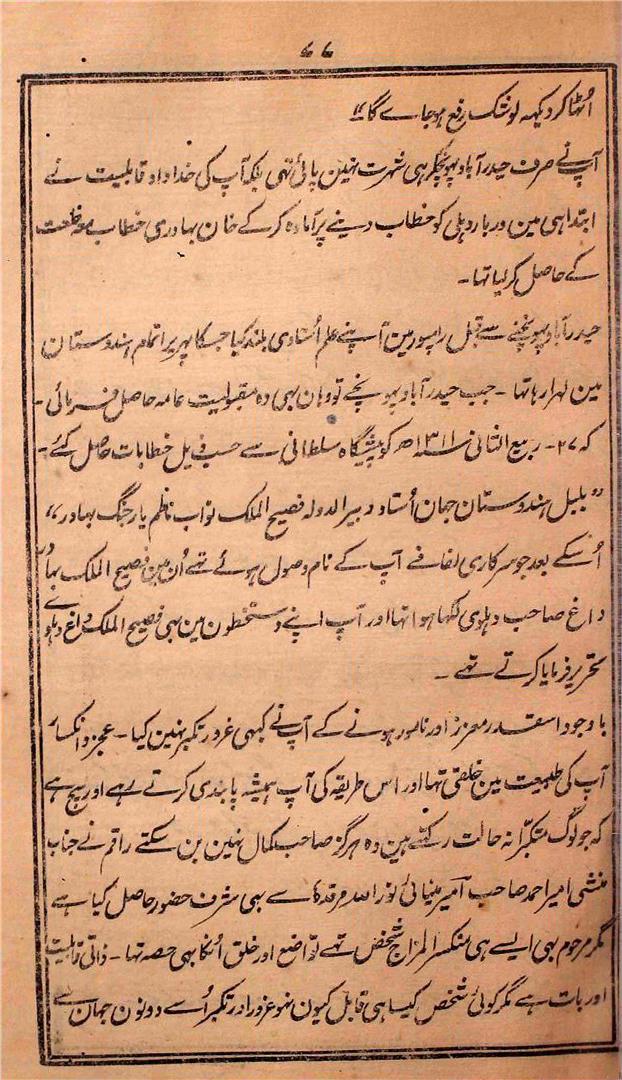 ۶۶
اُٹھا کر دیکھہ لو شک رفع ہو جاے گا؛؛
آپ نے صرف حیدرآباد پہونچکر ہی شہرت نہین پائی تہی بلکہ آپ کی خداداد قابلیت نے
ابتدا ہی مین دربار دہلی کو خطاب دینے پر آمادہ کر کے خان بہادری خطاب معہ خلعت
کے حاصل کر لیا تہا ۔
حیدرآباد پہونچنے سے قبل رامپور مین آپنے علم اُستادی بلند کیا جسکا پہریرا تمام ہندوستان
مین لہرا رہا تہا ۔ جب حیدرآباد پہونچے تو وہان بہی وہ مقبولیت عامہ حاصل فرمائی ۔
کہ ۲۷ ۔ ربیع الثانی سنہ ۱۳۱۱ھ کو پیشگاہ سلطانی سے حسب ذیل خطابات حاصل کئے ۔
”بلبل ہندوستان جہان اُستاد دبیر الدولہ فصیح الملک نواب ناظم یار جنگ بہادر“
اُسکے بعد جو سرکاری لفافے آپ کے نام وصول ہوئے تہے اُن مین فصیح الملک بہادر
داغ صاحب دہلوی لکہا ہوا تہا اور آپ اپنے دستخطون مین بہی فصیح الملک داغ دہلوی
تحریر فرمایا کرتے تہے ۔
باوجود اسقدر معزز اور نامور ہونے کے آپ نے کبہی غرور تکبر نہین کیا ۔ عجز و انکسار
آپ کی طبیعت مین خلقی تہا اور اس طریقہ کی آپ ہمیشہ پابندی کرتے رہے اور سچ ہے
کہ جو لوگ متکبرانہ حالت رکہتے ہین وہ ہرگز صاحب کمال نہین بن سکتے راقم نے جناب
منشی امیر احمد صاحب امیر مینائی نور اللہ مرقدہٗ سے بہی شرف حضور حاصل کیا ہے
مگر مرحوم بہی ایسے ہی منکسر المزاج شخص تہے تواضع اور خلق اُنکا بہی حصہ تہا ۔ ذاتی قابلیت
اور بات ہے مگر کوئی شخص کیسا ہی قابل کیون نہو غرور اور تکبر اُسے دونون جہان سے